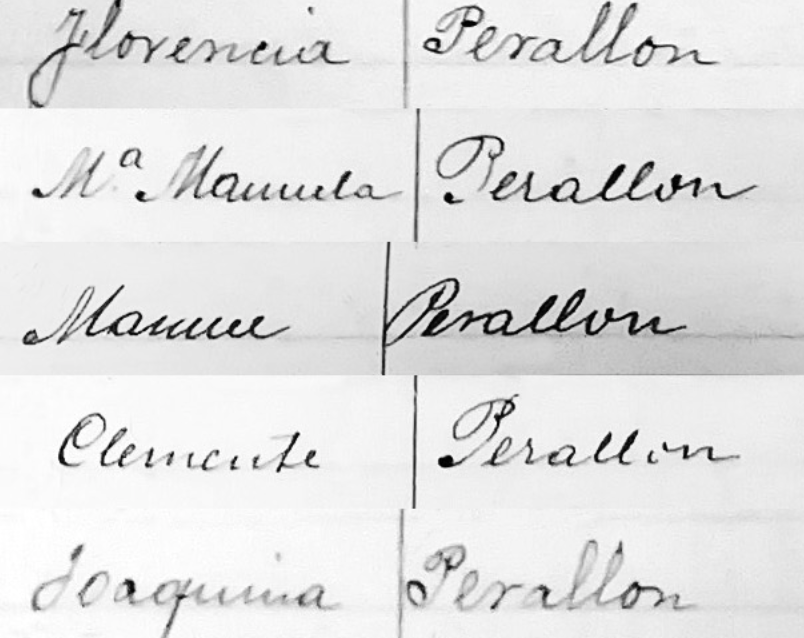 Florencia Perallon
Mª Manuela Perallon
Manuel Perallon
Clemente Perallon
Joaquina Perallon